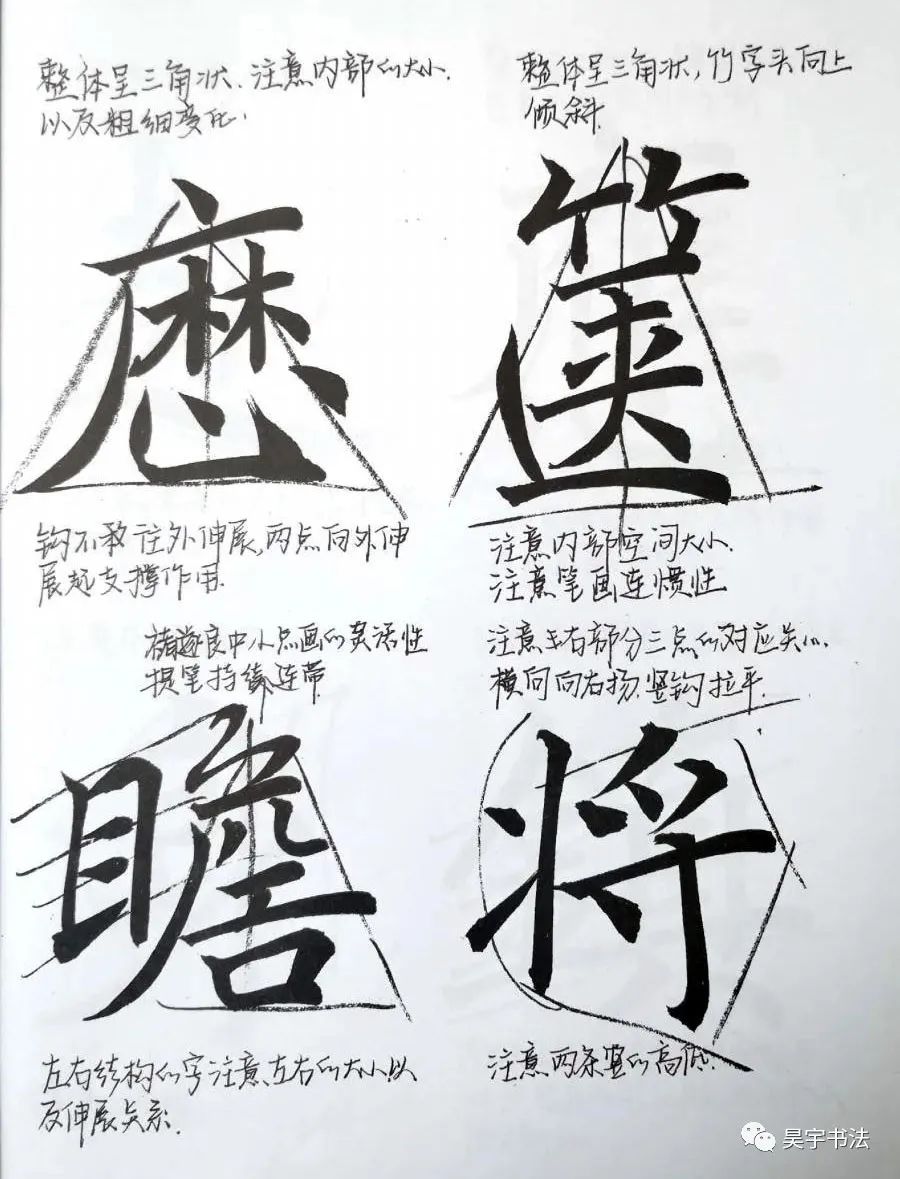 整体呈三角状.注意内部的大小.
以及粗细变化.
整体呈三角状,竹字头向上
倾斜.
箧
钩不敢往外伸展,两点向外伸
展起支撑作用.
注意内部空间大小.
注意笔画连惯性
褚遂良中小点画的灵活性
提笔持续连带
注意左右部分三点的对应关系.
横向向右扬.竖钩拉平.
瞻
将
左右结构的字注意左右的大小以
及伸展关系.
注意两条竖的高低.
昊宇书法